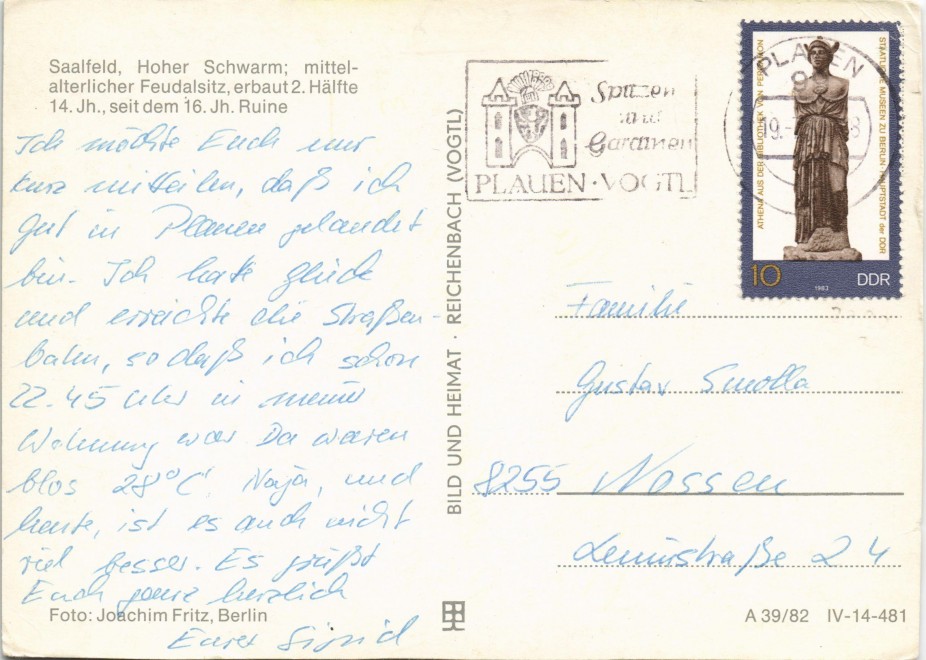 Saalfeld, Hoher Schwarm; mittel-
alterlicher Feudalsitz, erbaut 2. Hälfte
14. Jh., seit dem 16. Jh. Ruine
Ich möchte Euch nur
kurz mitteilen, daß ich
gut in Plauen gelandet
bin. Ich hatte Glück
und erreichte die Straßen-
bahn, so daß ich schon
22.45 Uhr in meiner
Wohnung war. Da waren
blos 28°C. Naja, und
heute, ist es auch nicht
viel besser. Es grüßt
Euch ganz herzlich
Eure Sigrid
Foto: Joachim Fritz, Berlin
BILD UND HEIMAT · REICHENBACH (VOGTL)
Spitzen
und
Gardinen
PLAUEN · VOGTL
PLAUEN
ATHENA AUS DER BIBLIOTHEK VON PERGAMON
STAATLICHE MUSEEN ZU BERLIN HAUPTSTADT der DDR
10
1983
DDR
Familie
Gustav Smolla
8255 Nossen
Leninstraße 24
A 39/82 IV-14-481